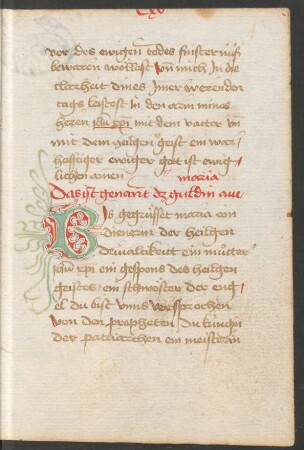 vor des ewigen todes finsternüß
bewaren wöllest vnd mich in die
clarheit dines imer werenden
tags leitest in den dem mines
heren ihu xpi mit dem vatter vn
mit dem heilgen geist ein war
hafftiger ewiger gott ist ewig
lichen amen maria
Das ist genant dz guldin aue
Bis gegrüsset maria ein
dienerin der heilgen
driualtikeitt ein mütter
ihu xpi ein gespons des heilgen
geistes / ein schwöster der eng
el du bist vnns versprochen
von den propheten / du künigin
der patriarchen ein meisterin